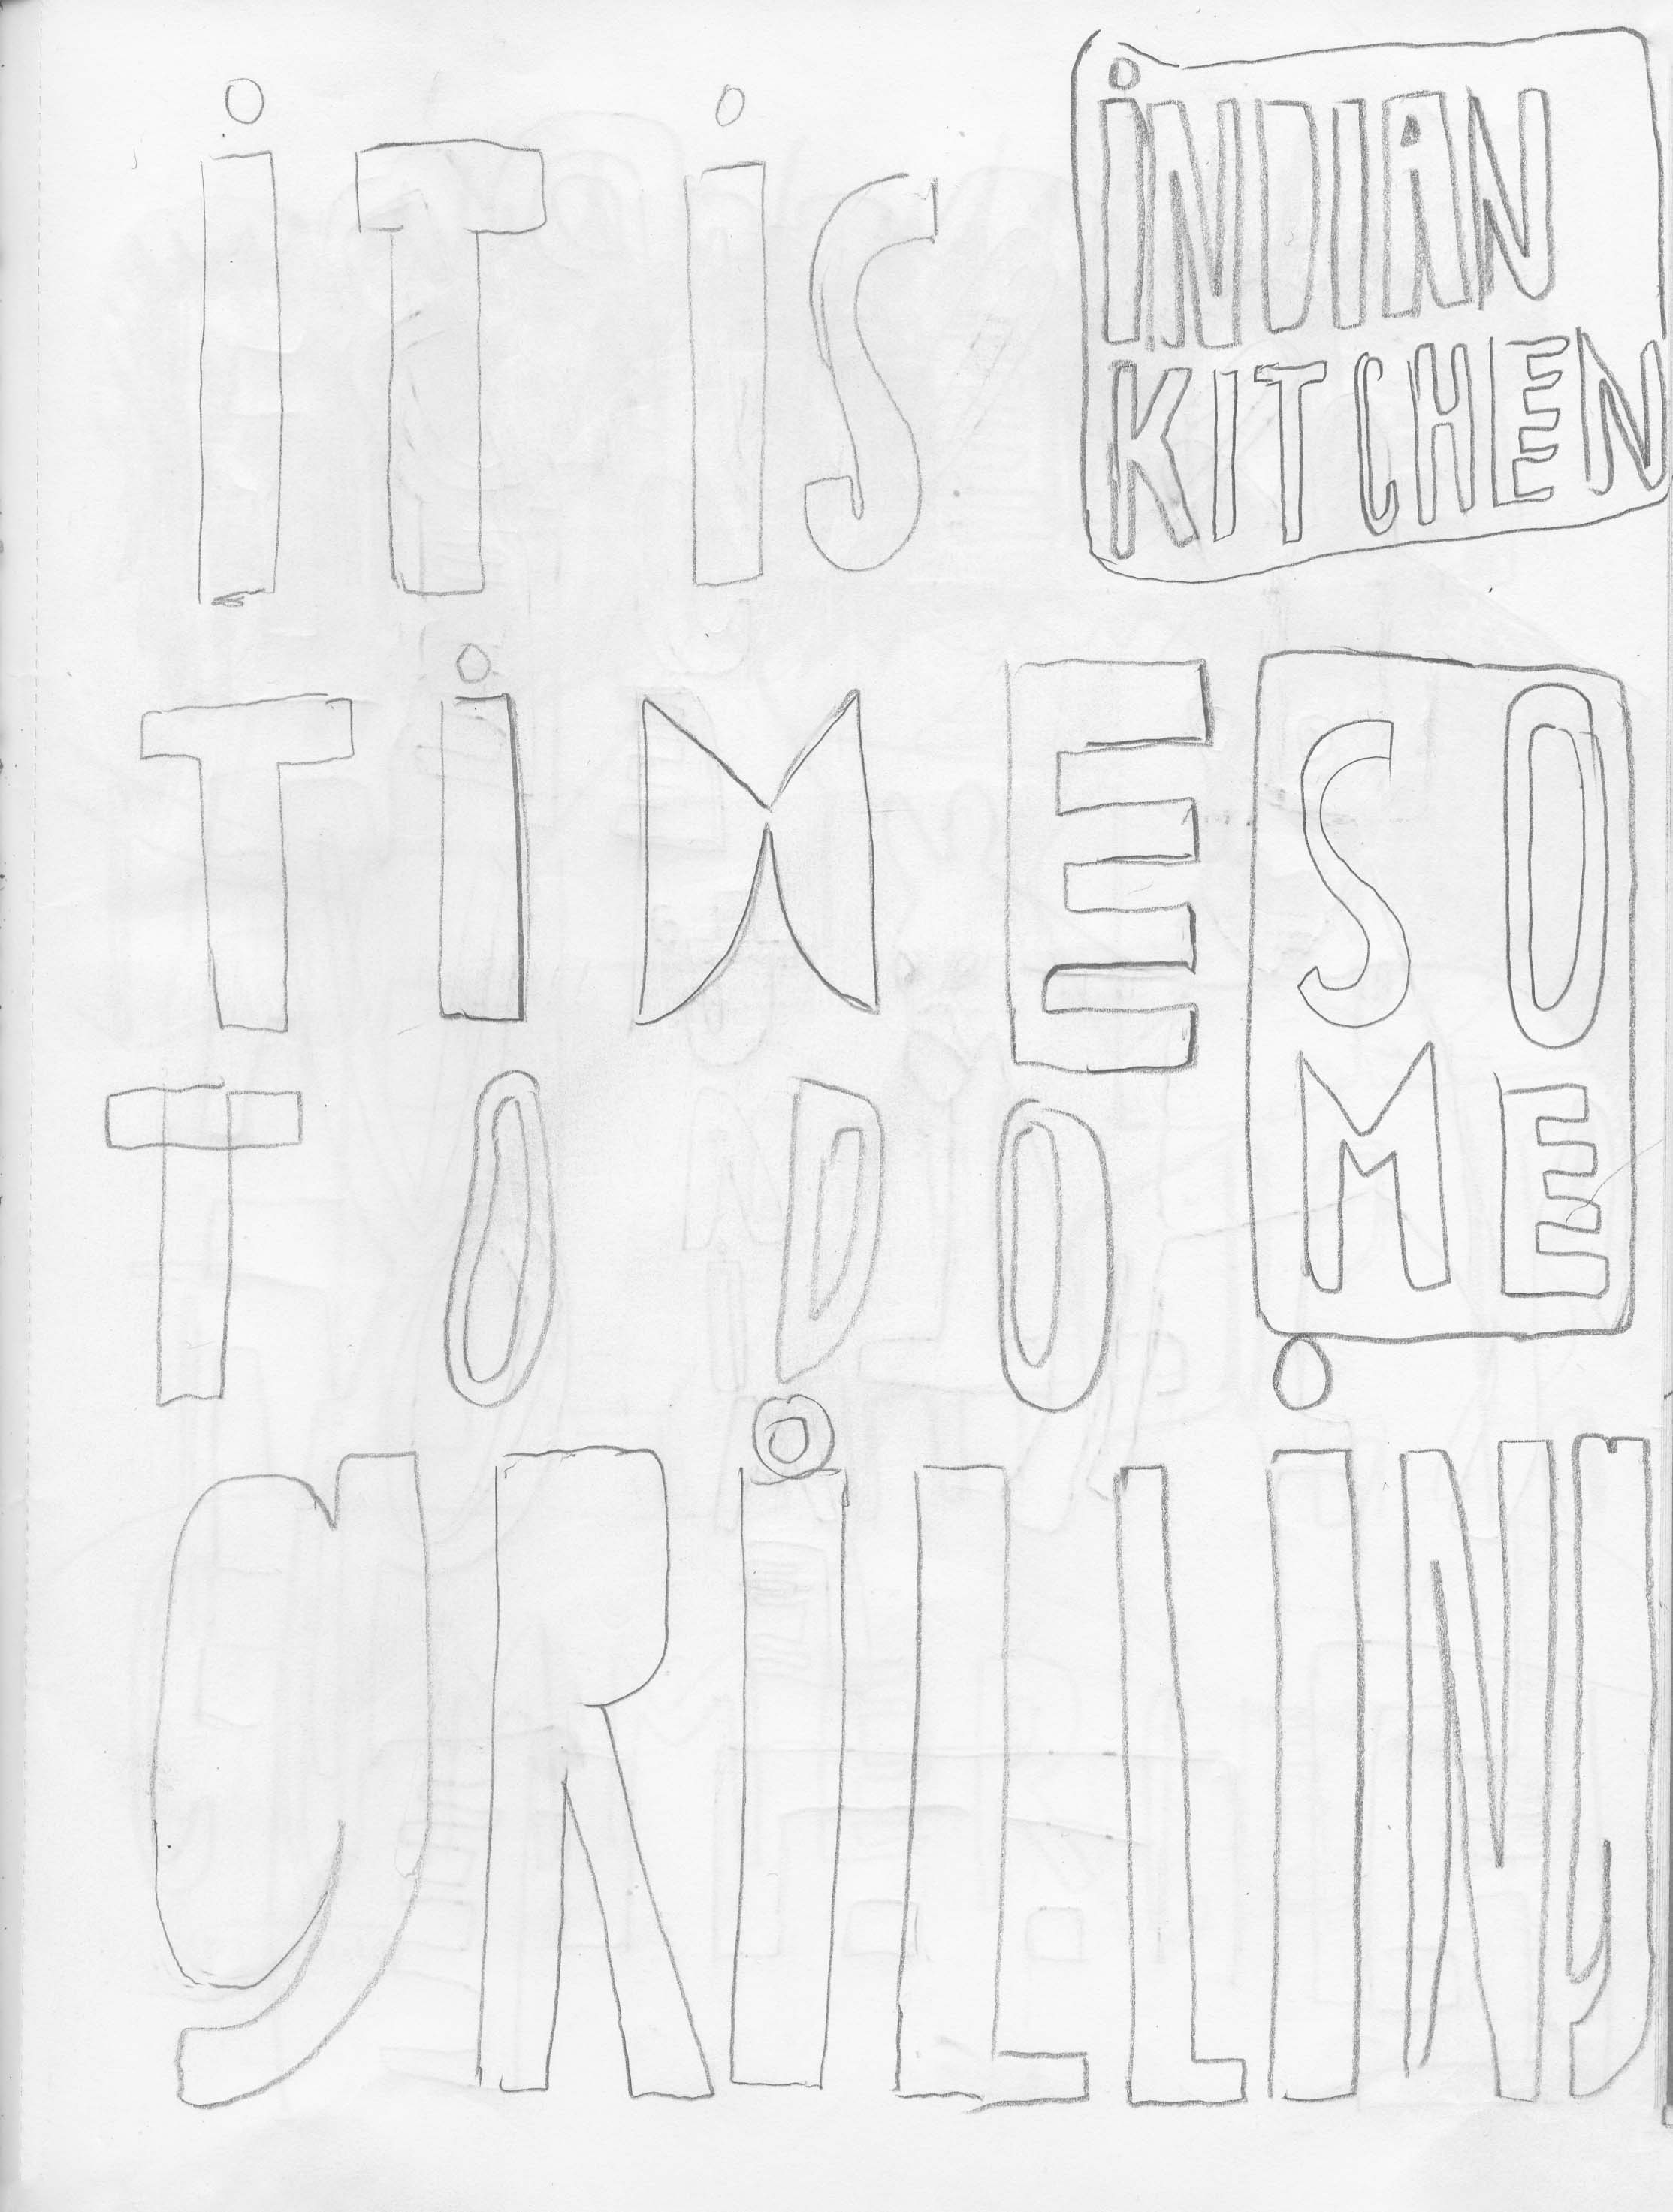 iT iS
iNDIAN
KITCHEN
TiME
SO
ME
TO DO
gRiLLiNg